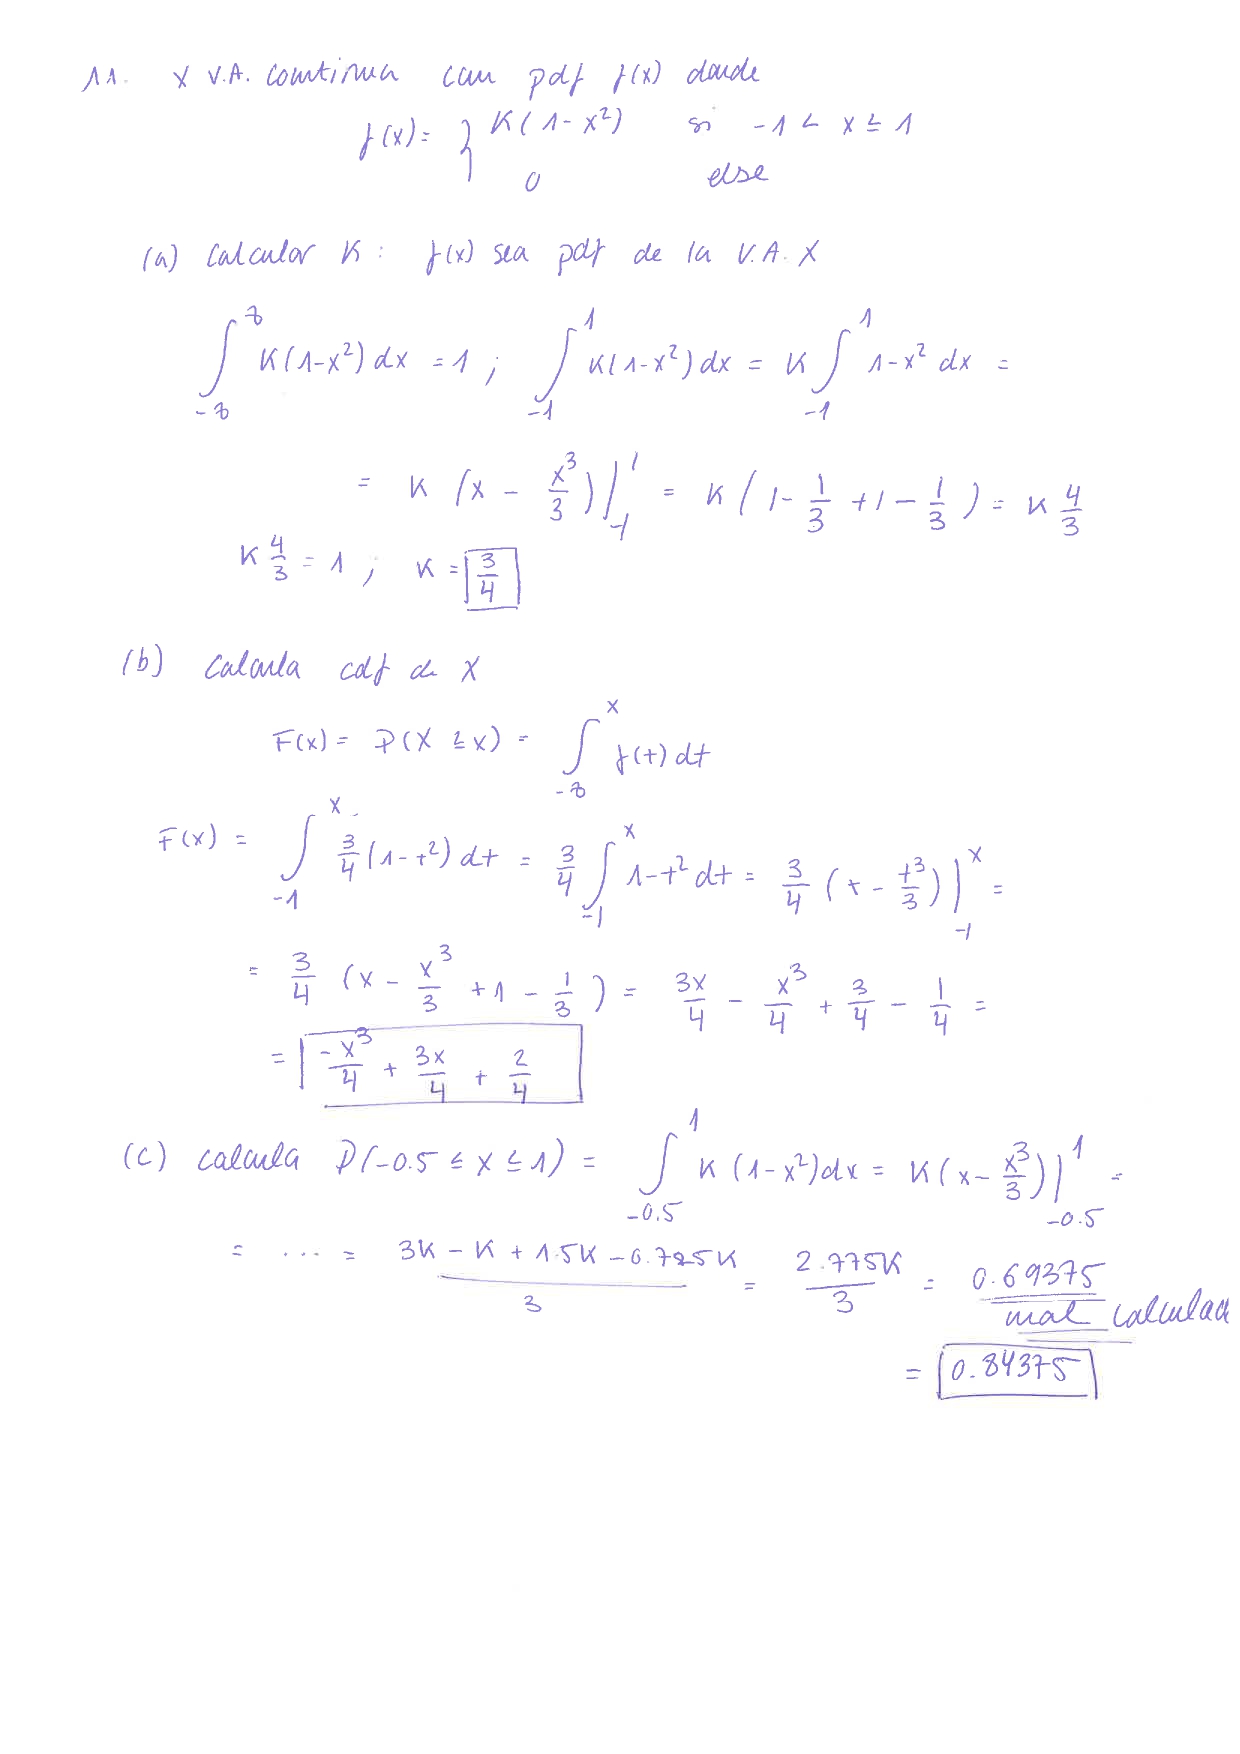 11. X V.A. continua con pdf f(x) donde
f(x) = { K(1-x²) si -1 < x ≤ 1
0 else
(a) Calcular K : f(x) sea pdf de la V.A. X
∫_{-∞}^{∞} K(1-x²) dx = 1 ; ∫_{-1}^{1} K(1-x²) dx = K ∫_{-1}^{1} 1-x² dx =
= K (x - x³/3)|_{-1}^{1} = K (1 - 1/3 + 1 - 1/3) = K 4/3
K 4/3 = 1 ; K = 3/4
(b) Calcula cdf de X
F(x) = P(X ≤ x) = ∫_{-∞}^{x} f(t) dt
F(x) = ∫_{-1}^{x} 3/4 (1-t²) dt = 3/4 ∫_{-1}^{x} 1-t² dt = 3/4 (t - t³/3)|_{-1}^{x} =
= 3/4 (x - x³/3 + 1 - 1/3) = 3x/4 - x³/4 + 3/4 - 1/4 =
= -x³/4 + 3x/4 + 2/4
(c) Calcula P(-0.5 ≤ X ≤ 1) = ∫_{-0.5}^{1} K (1-x²) dx = K (x - x³/3)|_{-0.5}^{1} =
= ... = (3K - K + 1.5K - 0.725K)/3 = 2.775K/3 = 0.69375
mal calculad
= 0.84375